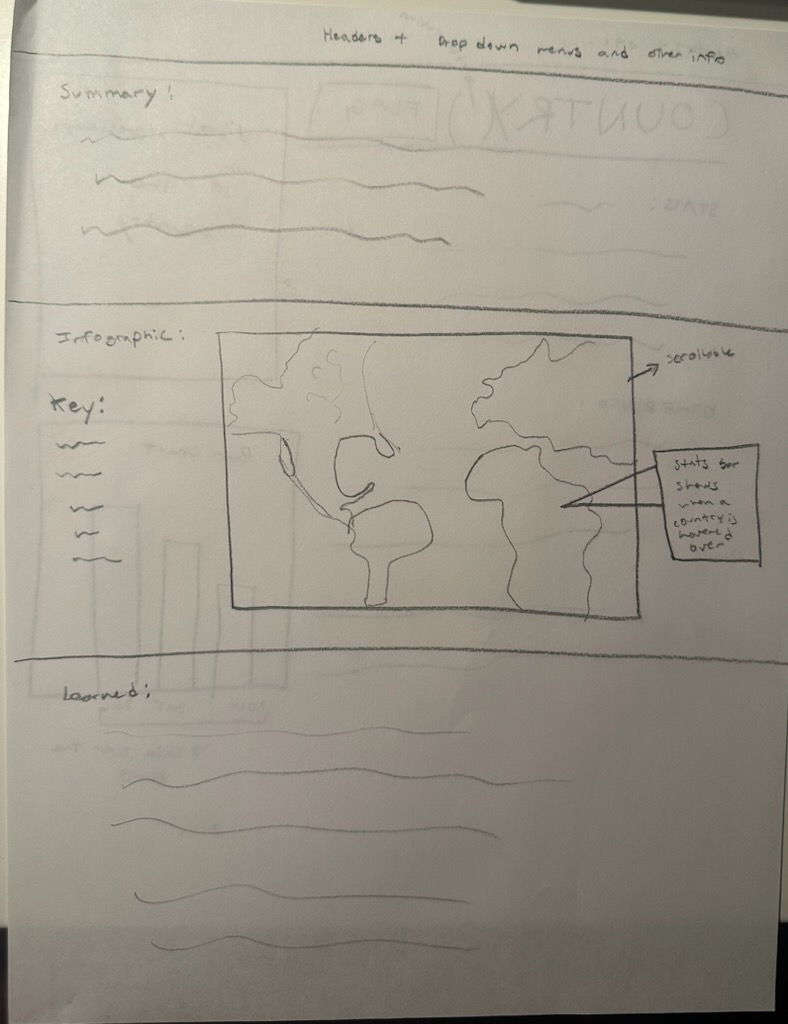 Headers + Drop down menus and other info
Summary:
Infographic:
scrollable
Key:
stats bar
shows
when a
country is
hovered
over
Learned:
COUNTRY(')
FLAG
STATS: